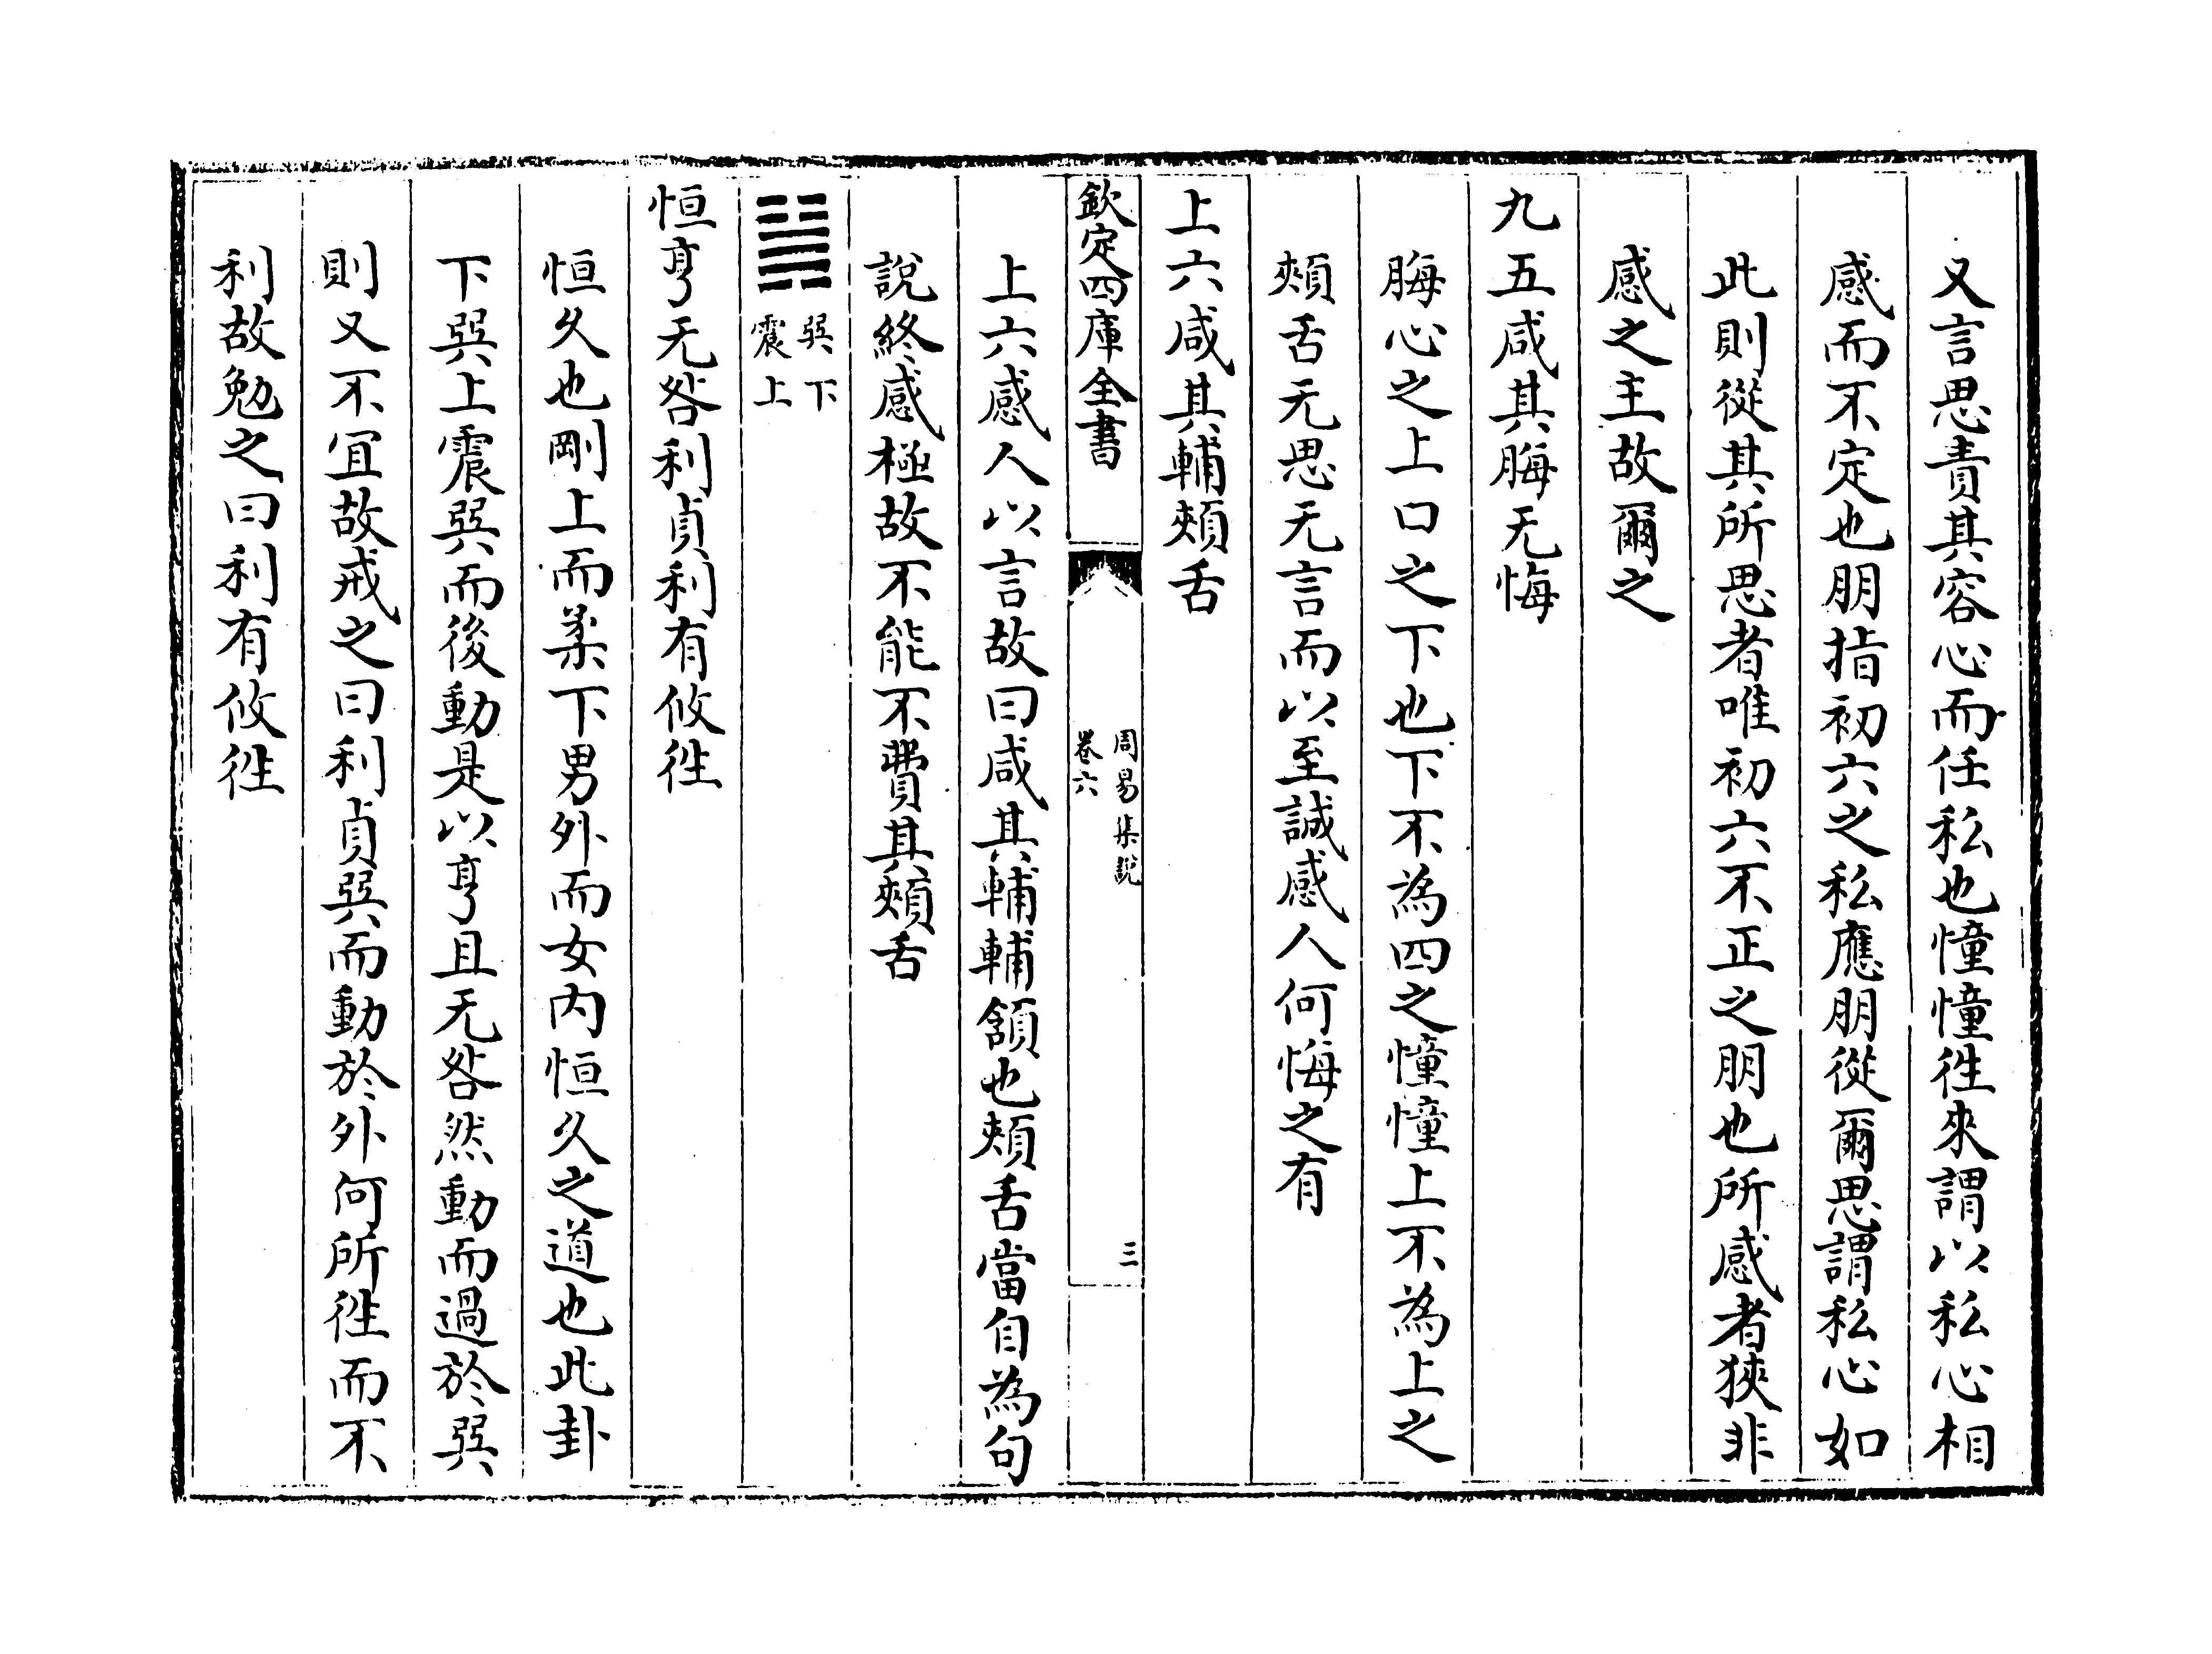 又言思責其容心而任私也憧憧徃來謂以私心相
感而不定也朋指初六之私應朋從爾思謂私心如
此則從其所思者唯初六不正之朋也所感者狹非
感之主故爾之
九五咸其脢无悔
脢心之上口之下也下不為四之憧憧上不為上之
頰舌无思无言而以至誠感人何悔之有
上六咸其輔頰舌
欽定四庫全書
周易集說
卷六
三
上六感人以言故曰咸其輔輔頷也頰舌當自為句
說終感極故不能不費其頰舌
䷟
巽下
震上
恒亨无咎利貞利有攸徃
恒久也剛上而柔下男外而女内恒久之道也此卦
下巽上震巽而後動是以亨且无咎然動而過於巽
則又不宜故戒之曰利貞巽而動於外何所徃而不
利故勉之曰利有攸徃